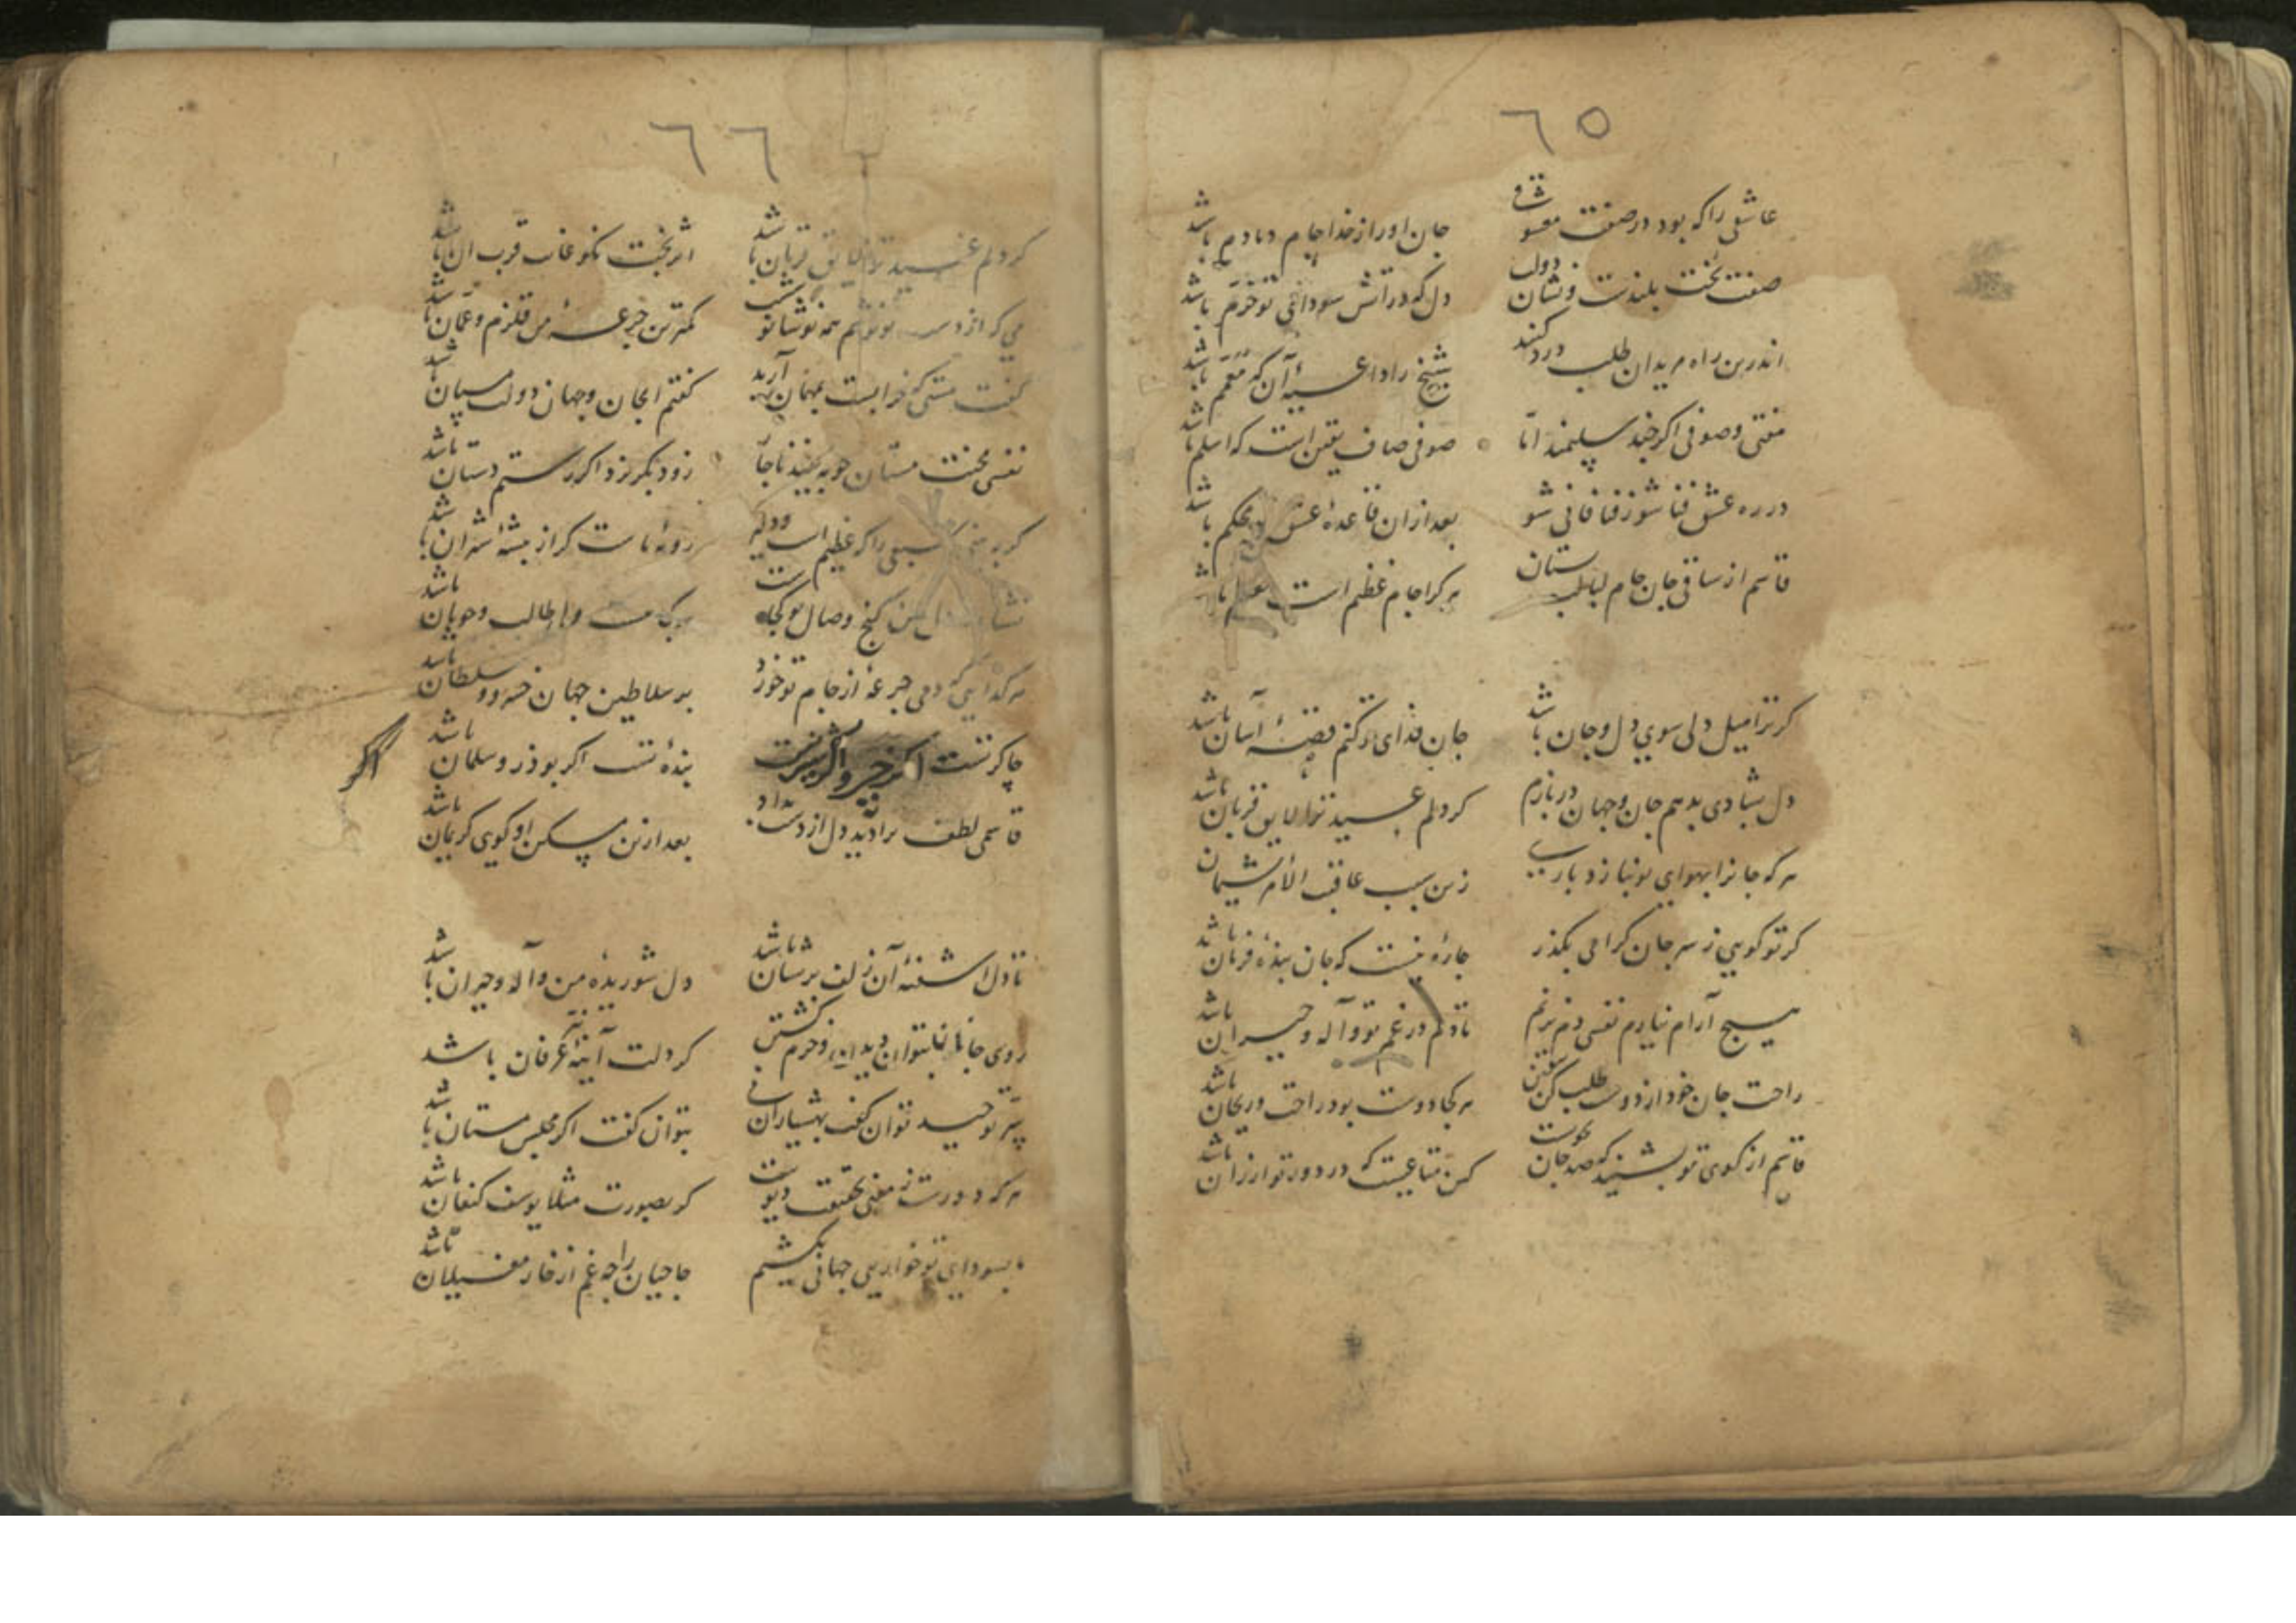 ٦٥
عاشقی را که بود در صفت معشوقی جان او را ز خدا جام دمادم باشد
صفت تخت بلندت و نشان دولت دل که در آتش سودائی تو خرم باشد
اندرین راه مریدان طلب درد کنند شیخ را داعیهٔ آن که معمم باشد
مفتی و صوفی اگر چند سلیمند اما صوفی صاف یقین است که اسلم باشد
در ره عشق فنا شو ز فنا فانی شو بعد ازان قاعدهٔ عشق تو محکم باشد
قاسم از ساقی جان جام لبالب بستان هر کرا جام عظیم است معظم باشد
گر ترا میل دلی سوی دل و جان باشد جان فدای تو کنم قصهٔ آسان باشد
دل بشادی بدهم جان و جهان دربازم گر دلم عید ترا لایق قربان باشد
هر که جانرا بهوای تو نبازد یارب زین سبب عاقبت الامر پشیمان
گر تو گویی ز سر جان گرامی بگذر چاره نیست که جان بندهٔ فرمان باشد
هیچ آرام نیارم نفسی دم نزنم تا دلم در غم تو واله و حیران باشد
راحت جان خود از دوست طلب کن بیقین هر کجا دوست بود راحت و ریحان باشد
قاسم از کوی تو بشنید که صد جان نکوست کین متاعیست که در دور تو ارزان باشد
٦٦
گر دلم عید ترا لایق قربان باشد اثر بخت نکو غایت قرب آن باشد
می که از دست تو نوشم همه نوشانوشست کمترین جرعهٔ من قلزم و عمان باشد
گفت مستی که خرابست بمهمان آرید گفتم ای جان و جهان دولت میهمان باشد
نفسی محنت مستان چو به بیند ناجا زود بگریزد اگر رستم دستان باشد
گربه سبعی را که عظیم است روبه ماست گر از بیشهٔ شیران باشد
گنج وصال تو کجا هر کجا هست طالب و جویان باشد
هر گدایی که دمی جرعه از جام تو خورد بر سلاطین جهان خسرو و سلطان باشد
چاکر تست اگر خسرو اگر شیرینست بندهٔ تست اگر بوذر و سلمان باشد
اگر
قاسمی لطف ترا دید دل از دست بداد بعد ازین مسکن او کوی کریمان باشد
تا دل اشفتهٔ آن زلف پریشان باشد دل شوریدهٔ من واله و حیران باشد
روی جانا نتوان دیدن و خرم گشتن گر دلت آینهٔ عرفان باشد
سر توحید نتوان گفت بهشیاران بتوان گفت اگر مجلس مستان باشد
هر که دورست ز معنی بحقیقت دیوست گر بصورت مثلا یوسف کنعان باشد
ما بسودای تو خواری جهانی بکشیم حاجیان را چه غم از خار مغیلان باشد